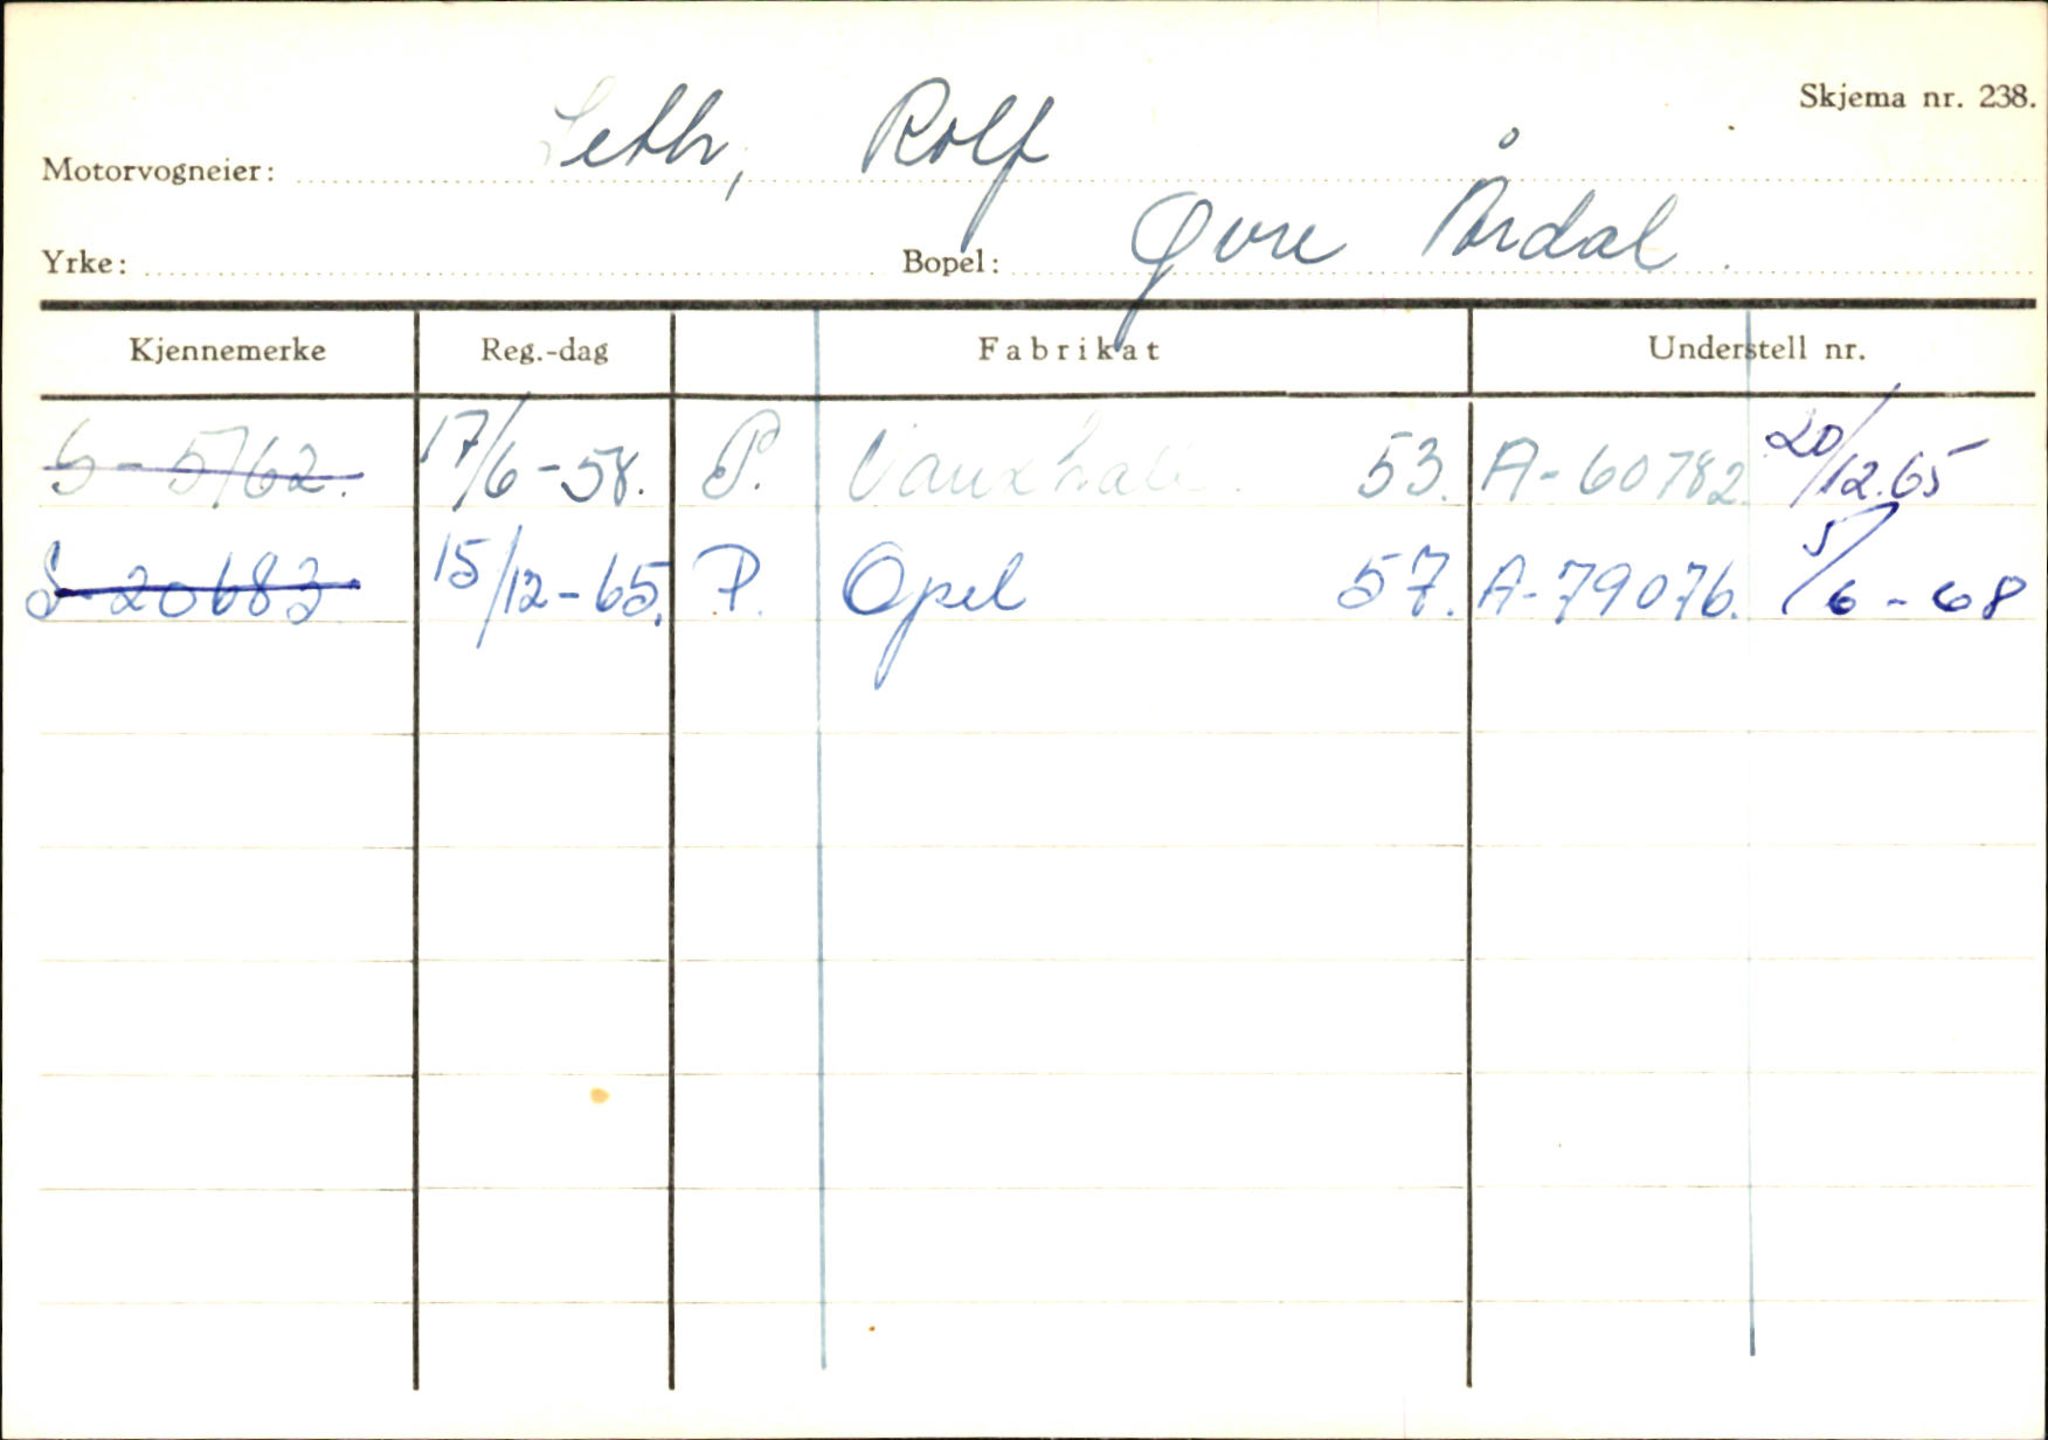 Skjema nr. 238.
Motorvogneier: Seth, Rolf
Yrke: Bopel: Øvre Årdal.
Kjennemerke Reg.-dag Fabrikat Understell nr.
S-5762. 17/6-58. P. Vauxhall. 53. A-60782. 20/12.65
S-20683 15/12-65. P. Opel 57. A-79076. 5/6-68